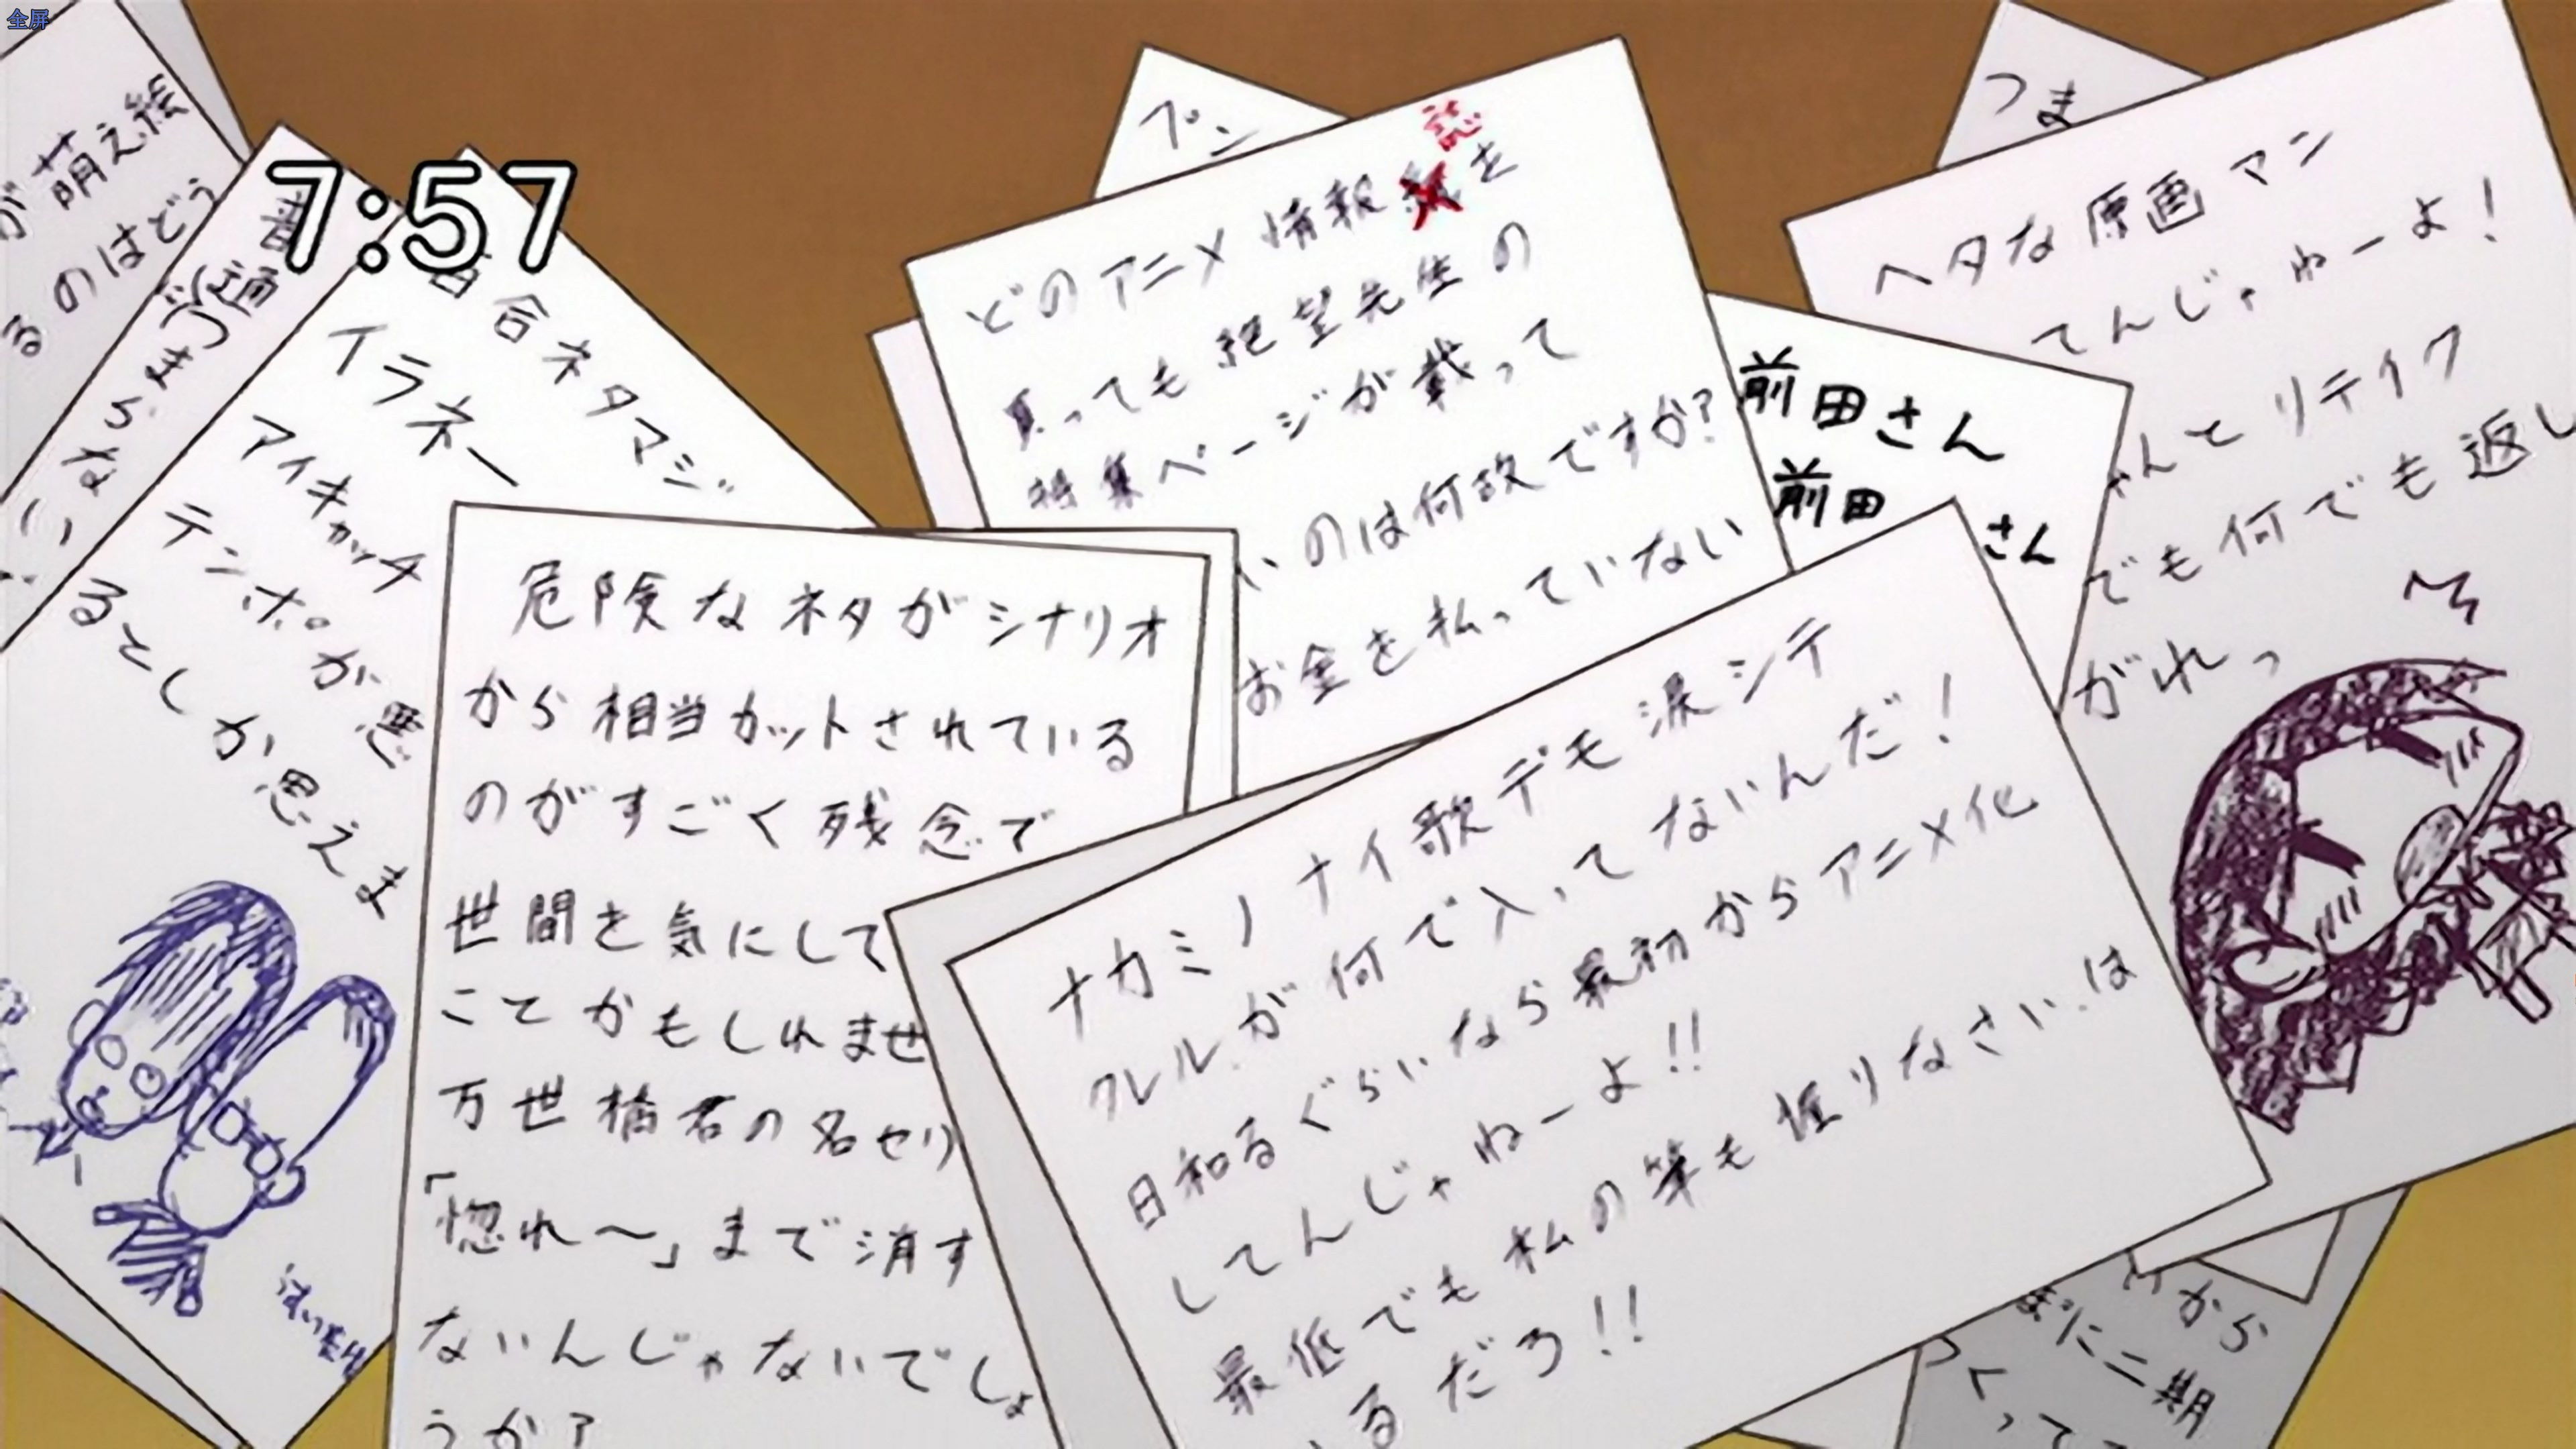 全屏
7:57
が萌え絵
るのはどう
普通
つまらない
百合ネタマジ
イラネー
アイキャッチ
テンポが悪
るとしか思えま
プン
誌
どのアニメ情報紙を
買っても絶望先生の
特集ページが載って
いのは何故ですか?
お金を払っていない
つま
ヘタな原画マン
てんじゃねーよ!
ゃんとリテイク
でも何でも返し
がれっ
前田さん
前田さん
危険なネタがシナリオ
から相当カットされている
のがすごく残念で
世間を気にして
ことかもしれませ
万世橋君の名セリ
「惚れ〜」まで消す
ないんじゃないでしょ
うか?
ナカミノナイ歌デモ涙シテ
クレルが何で入ってないんだ!
日和るぐらいなら最初からアニメ化
してんじゃねーよ!!
最低でも私の筆も握りなさいは
るだろ!!
から
まに二期
くって